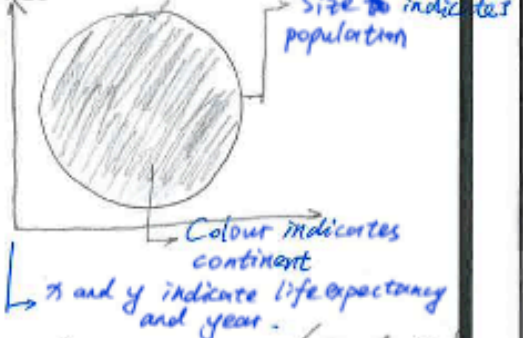 Size indicates
population
Colour indicates
continent
x and y indicate life expectancy
and year.